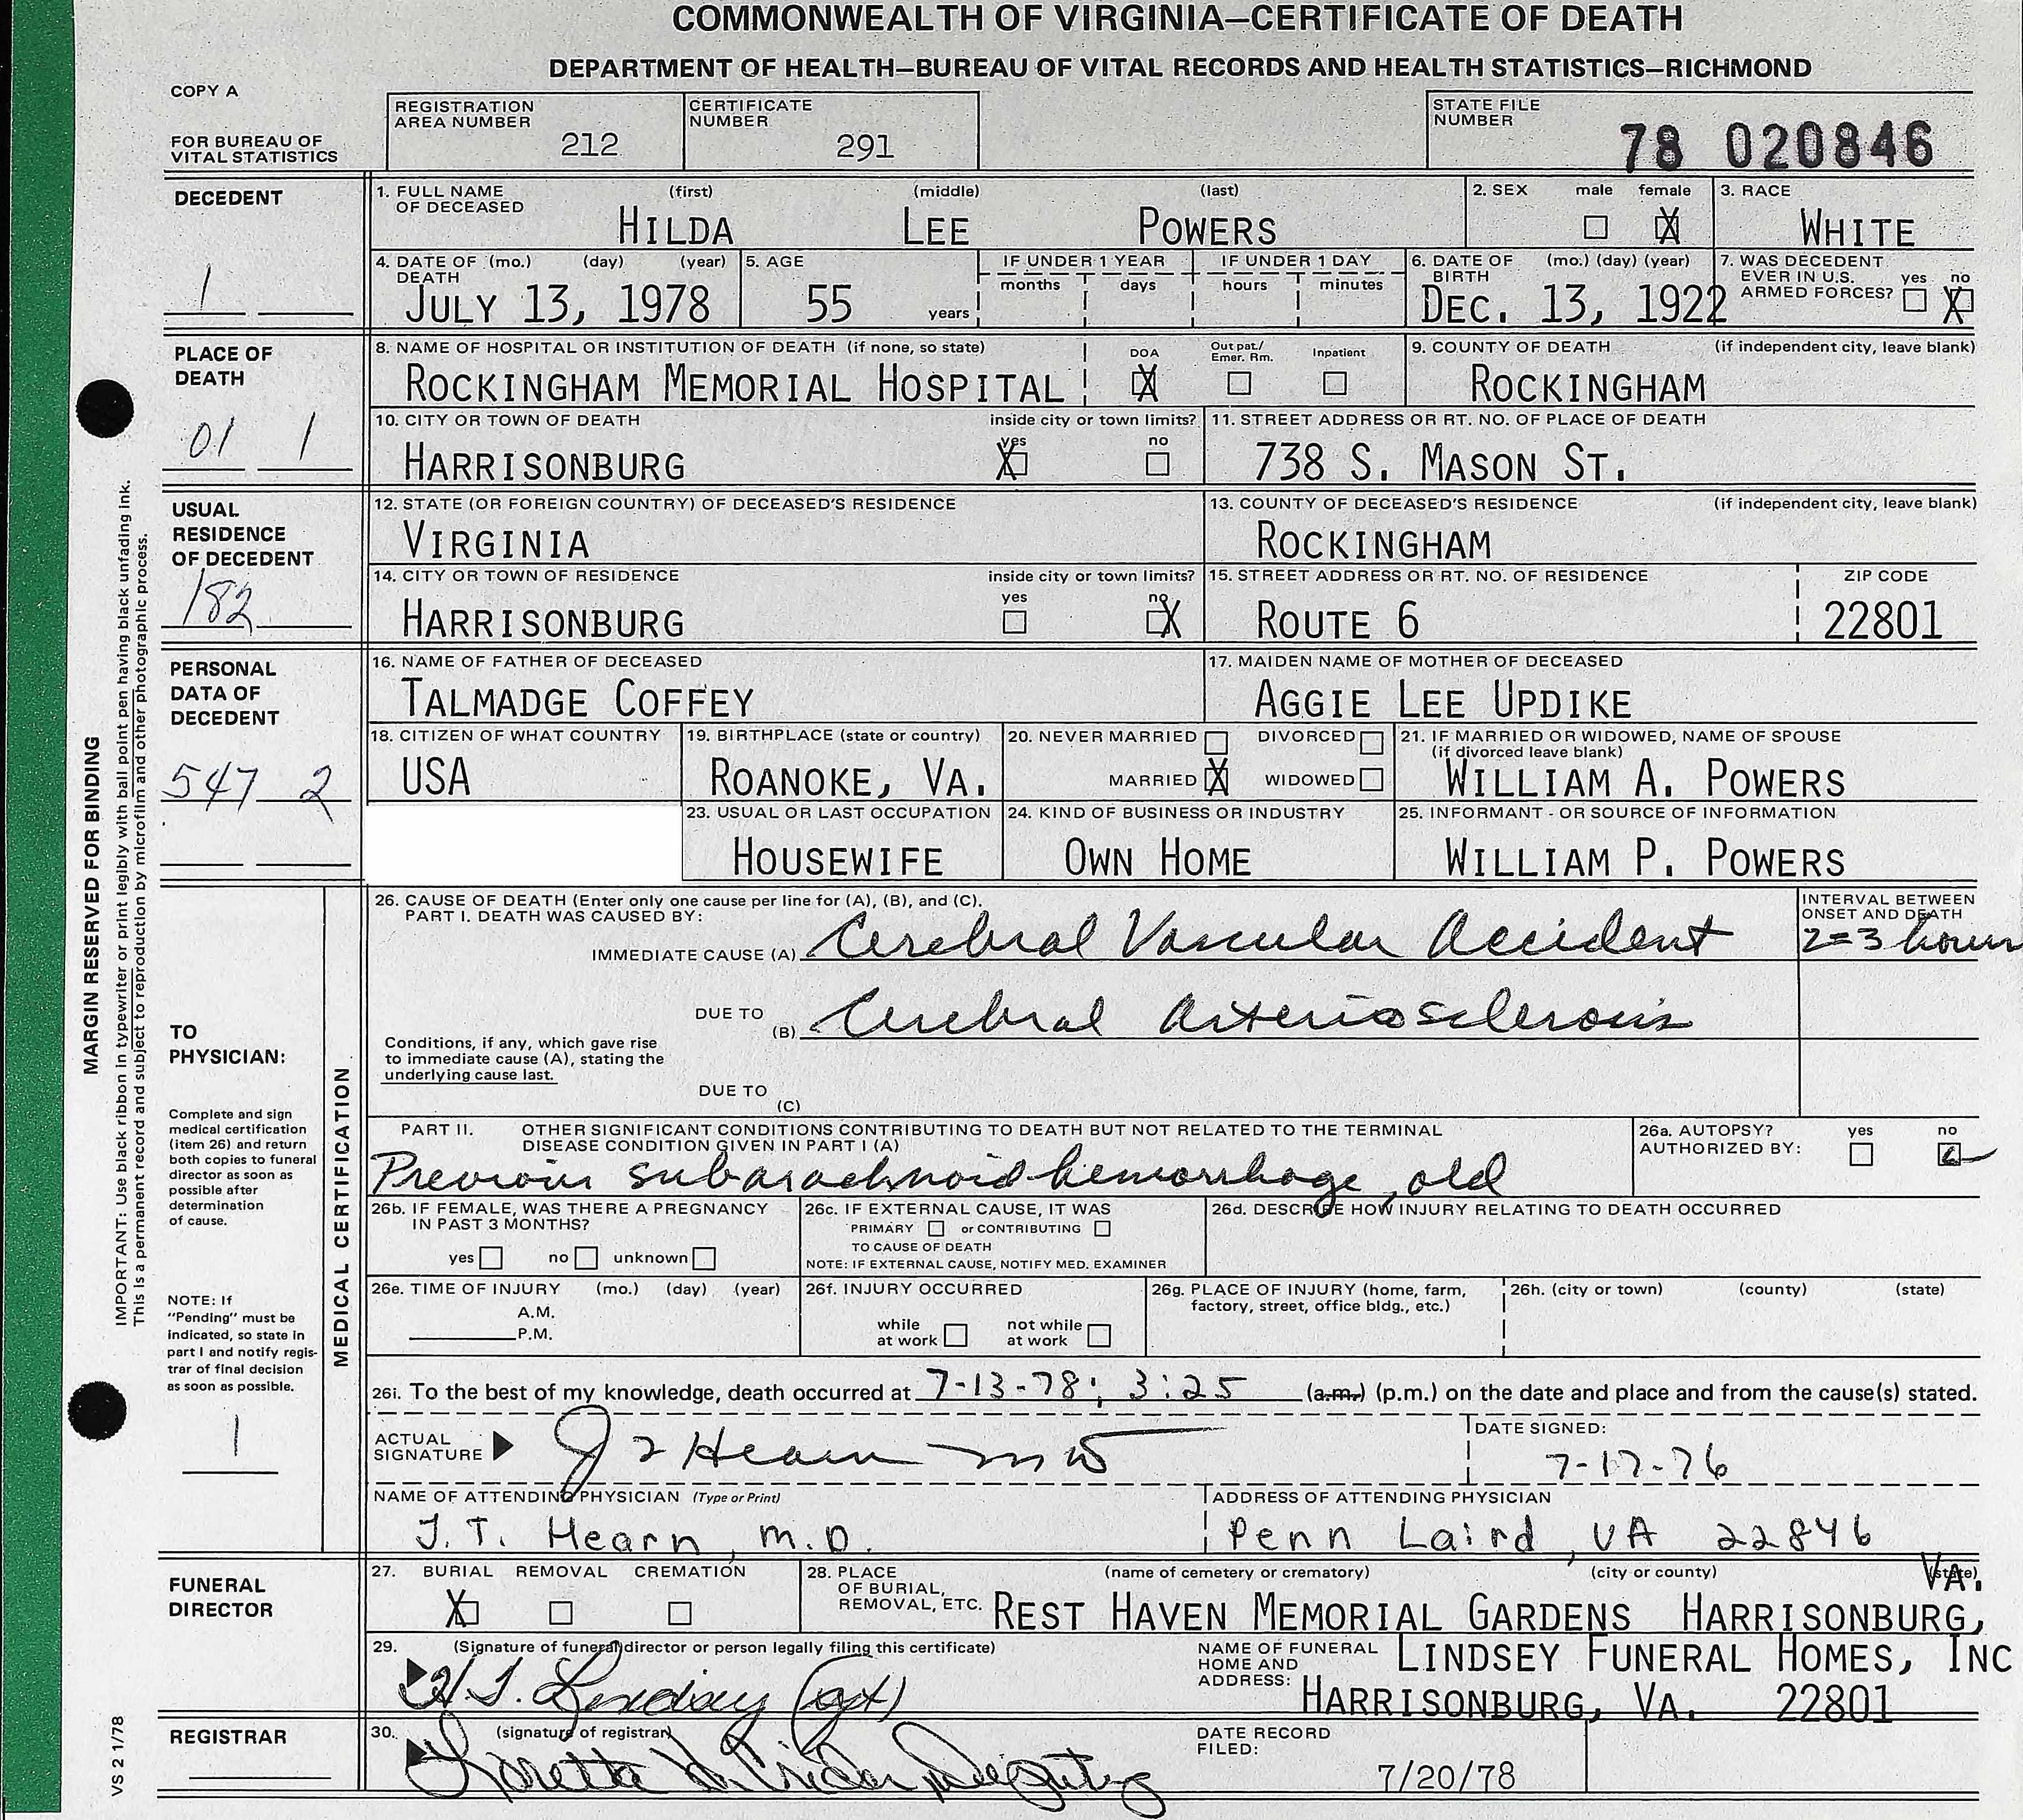 COMMONWEALTH OF VIRGINIA—CERTIFICATE OF DEATH
DEPARTMENT OF HEALTH—BUREAU OF VITAL RECORDS AND HEALTH STATISTICS—RICHMOND
COPY A
FOR BUREAU OF
VITAL STATISTICS
REGISTRATION
AREA NUMBER 212
CERTIFICATE
NUMBER 291
STATE FILE
NUMBER 78 020846
DECEDENT
1
1. FULL NAME (first) (middle) (last)
OF DECEASED
HILDA LEE POWERS
2. SEX male female X
3. RACE
WHITE
4. DATE OF (mo.) (day) (year)
DEATH
JULY 13, 1978
5. AGE
55 years
IF UNDER 1 YEAR
months days
IF UNDER 1 DAY
hours minutes
6. DATE OF (mo.) (day) (year)
BIRTH
DEC. 13, 1922
7. WAS DECEDENT
EVER IN U.S. yes no
ARMED FORCES? X
PLACE OF
DEATH
01 1
8. NAME OF HOSPITAL OR INSTITUTION OF DEATH (if none, so state)
ROCKINGHAM MEMORIAL HOSPITAL
DOA X
Out pat./
Emer. Rm.
Inpatient
9. COUNTY OF DEATH (if independent city, leave blank)
ROCKINGHAM
10. CITY OR TOWN OF DEATH inside city or town limits?
yes no
HARRISONBURG X
11. STREET ADDRESS OR RT. NO. OF PLACE OF DEATH
738 S. MASON ST.
USUAL
RESIDENCE
OF DECEDENT
182
12. STATE (OR FOREIGN COUNTRY) OF DECEASED'S RESIDENCE
VIRGINIA
13. COUNTY OF DECEASED'S RESIDENCE (if independent city, leave blank)
ROCKINGHAM
14. CITY OR TOWN OF RESIDENCE inside city or town limits?
yes no
HARRISONBURG X
15. STREET ADDRESS OR RT. NO. OF RESIDENCE ZIP CODE
ROUTE 6 22801
PERSONAL
DATA OF
DECEDENT
547 2
16. NAME OF FATHER OF DECEASED
TALMADGE COFFEY
17. MAIDEN NAME OF MOTHER OF DECEASED
AGGIE LEE UPDIKE
18. CITIZEN OF WHAT COUNTRY
USA
19. BIRTHPLACE (state or country)
ROANOKE, VA.
20. NEVER MARRIED DIVORCED
MARRIED X WIDOWED
21. IF MARRIED OR WIDOWED, NAME OF SPOUSE
(if divorced leave blank)
WILLIAM A. POWERS
23. USUAL OR LAST OCCUPATION
HOUSEWIFE
24. KIND OF BUSINESS OR INDUSTRY
OWN HOME
25. INFORMANT - OR SOURCE OF INFORMATION
WILLIAM P. POWERS
MARGIN RESERVED FOR BINDING
IMPORTANT: Use black ribbon in typewriter or print legibly with ball point pen having black unfading ink.
This is a permanent record and subject to reproduction by microfilm and other photographic process.
TO
PHYSICIAN:
Complete and sign
medical certification
(item 26) and return
both copies to funeral
director as soon as
possible after
determination
of cause.
NOTE: If
"Pending" must be
indicated, so state in
part I and notify regis-
trar of final decision
as soon as possible.
1
MEDICAL CERTIFICATION
26. CAUSE OF DEATH (Enter only one cause per line for (A), (B), and (C).
PART I. DEATH WAS CAUSED BY:
INTERVAL BETWEEN
ONSET AND DEATH
IMMEDIATE CAUSE (A) Cerebral Vascular Accident 2=3 hours
DUE TO
(B) Cerebral Arteriosclerosis
Conditions, if any, which gave rise
to immediate cause (A), stating the
underlying cause last.
DUE TO
(C)
PART II. OTHER SIGNIFICANT CONDITIONS CONTRIBUTING TO DEATH BUT NOT RELATED TO THE TERMINAL
DISEASE CONDITION GIVEN IN PART I (A)
Previous subarachnoid hemorrhage, old
26a. AUTOPSY? yes no
AUTHORIZED BY:
26b. IF FEMALE, WAS THERE A PREGNANCY
IN PAST 3 MONTHS?
yes no unknown
26c. IF EXTERNAL CAUSE, IT WAS
PRIMARY or CONTRIBUTING
TO CAUSE OF DEATH
NOTE: IF EXTERNAL CAUSE, NOTIFY MED. EXAMINER
26d. DESCRIBE HOW INJURY RELATING TO DEATH OCCURRED
26e. TIME OF INJURY (mo.) (day) (year)
A.M.
P.M.
26f. INJURY OCCURRED
while not while
at work at work
26g. PLACE OF INJURY (home, farm,
factory, street, office bldg., etc.)
26h. (city or town) (county) (state)
26i. To the best of my knowledge, death occurred at 7-13-78; 3:25 (a.m.) (p.m.) on the date and place and from the cause(s) stated.
ACTUAL
SIGNATURE J T Hearn MD
DATE SIGNED:
7-17-76
NAME OF ATTENDING PHYSICIAN (Type or Print)
J.T. Hearn, M.D.
ADDRESS OF ATTENDING PHYSICIAN
Penn Laird, VA 22846
FUNERAL
DIRECTOR
27. BURIAL REMOVAL CREMATION
X
28. PLACE (name of cemetery or crematory) (city or county) (state)
OF BURIAL,
REMOVAL, ETC. REST HAVEN MEMORIAL GARDENS HARRISONBURG, VA.
29. (Signature of funeral director or person legally filing this certificate)
NAME OF FUNERAL
HOME AND
ADDRESS:
LINDSEY FUNERAL HOMES, INC
HARRISONBURG, VA. 22801
REGISTRAR
30. (signature of registrar)
Loretta
Deputy
DATE RECORD
FILED:
7/20/78
VS 2 1/78